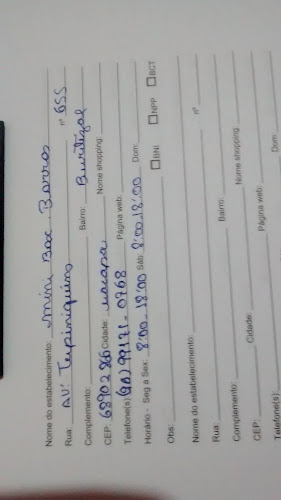 Nome do estabelecimento: mini Box Barros
Rua: AV: Tupiniquins nº 655
Complemento: Bairro: Buritizal
CEP: 68902866 Cidade: Macapa Nome shopping:
Telefone(s): (96) 99171-0768 Página web:
Horário - Seg a Sex: 8:00-18:00 Sáb: 8:00-18:00 Dom:
Obs: BNI NPP BCT
Nome do estabelecimento:
Rua: nº
Complemento: Bairro:
CEP: Cidade: Nome shopping:
Telefone(s): Página web:
Dom: